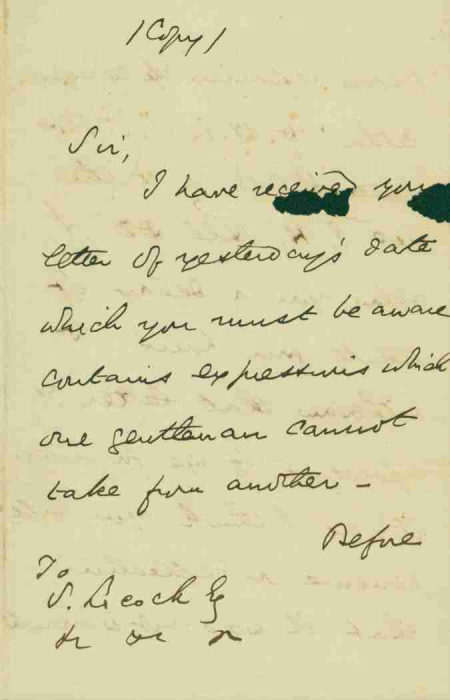 /Copy/
Sir,
I have received your
letter of yesterday's date
which you must be aware
contains expressions which
one gentleman cannot
take from another –
Before
To
S. Lecock Esq